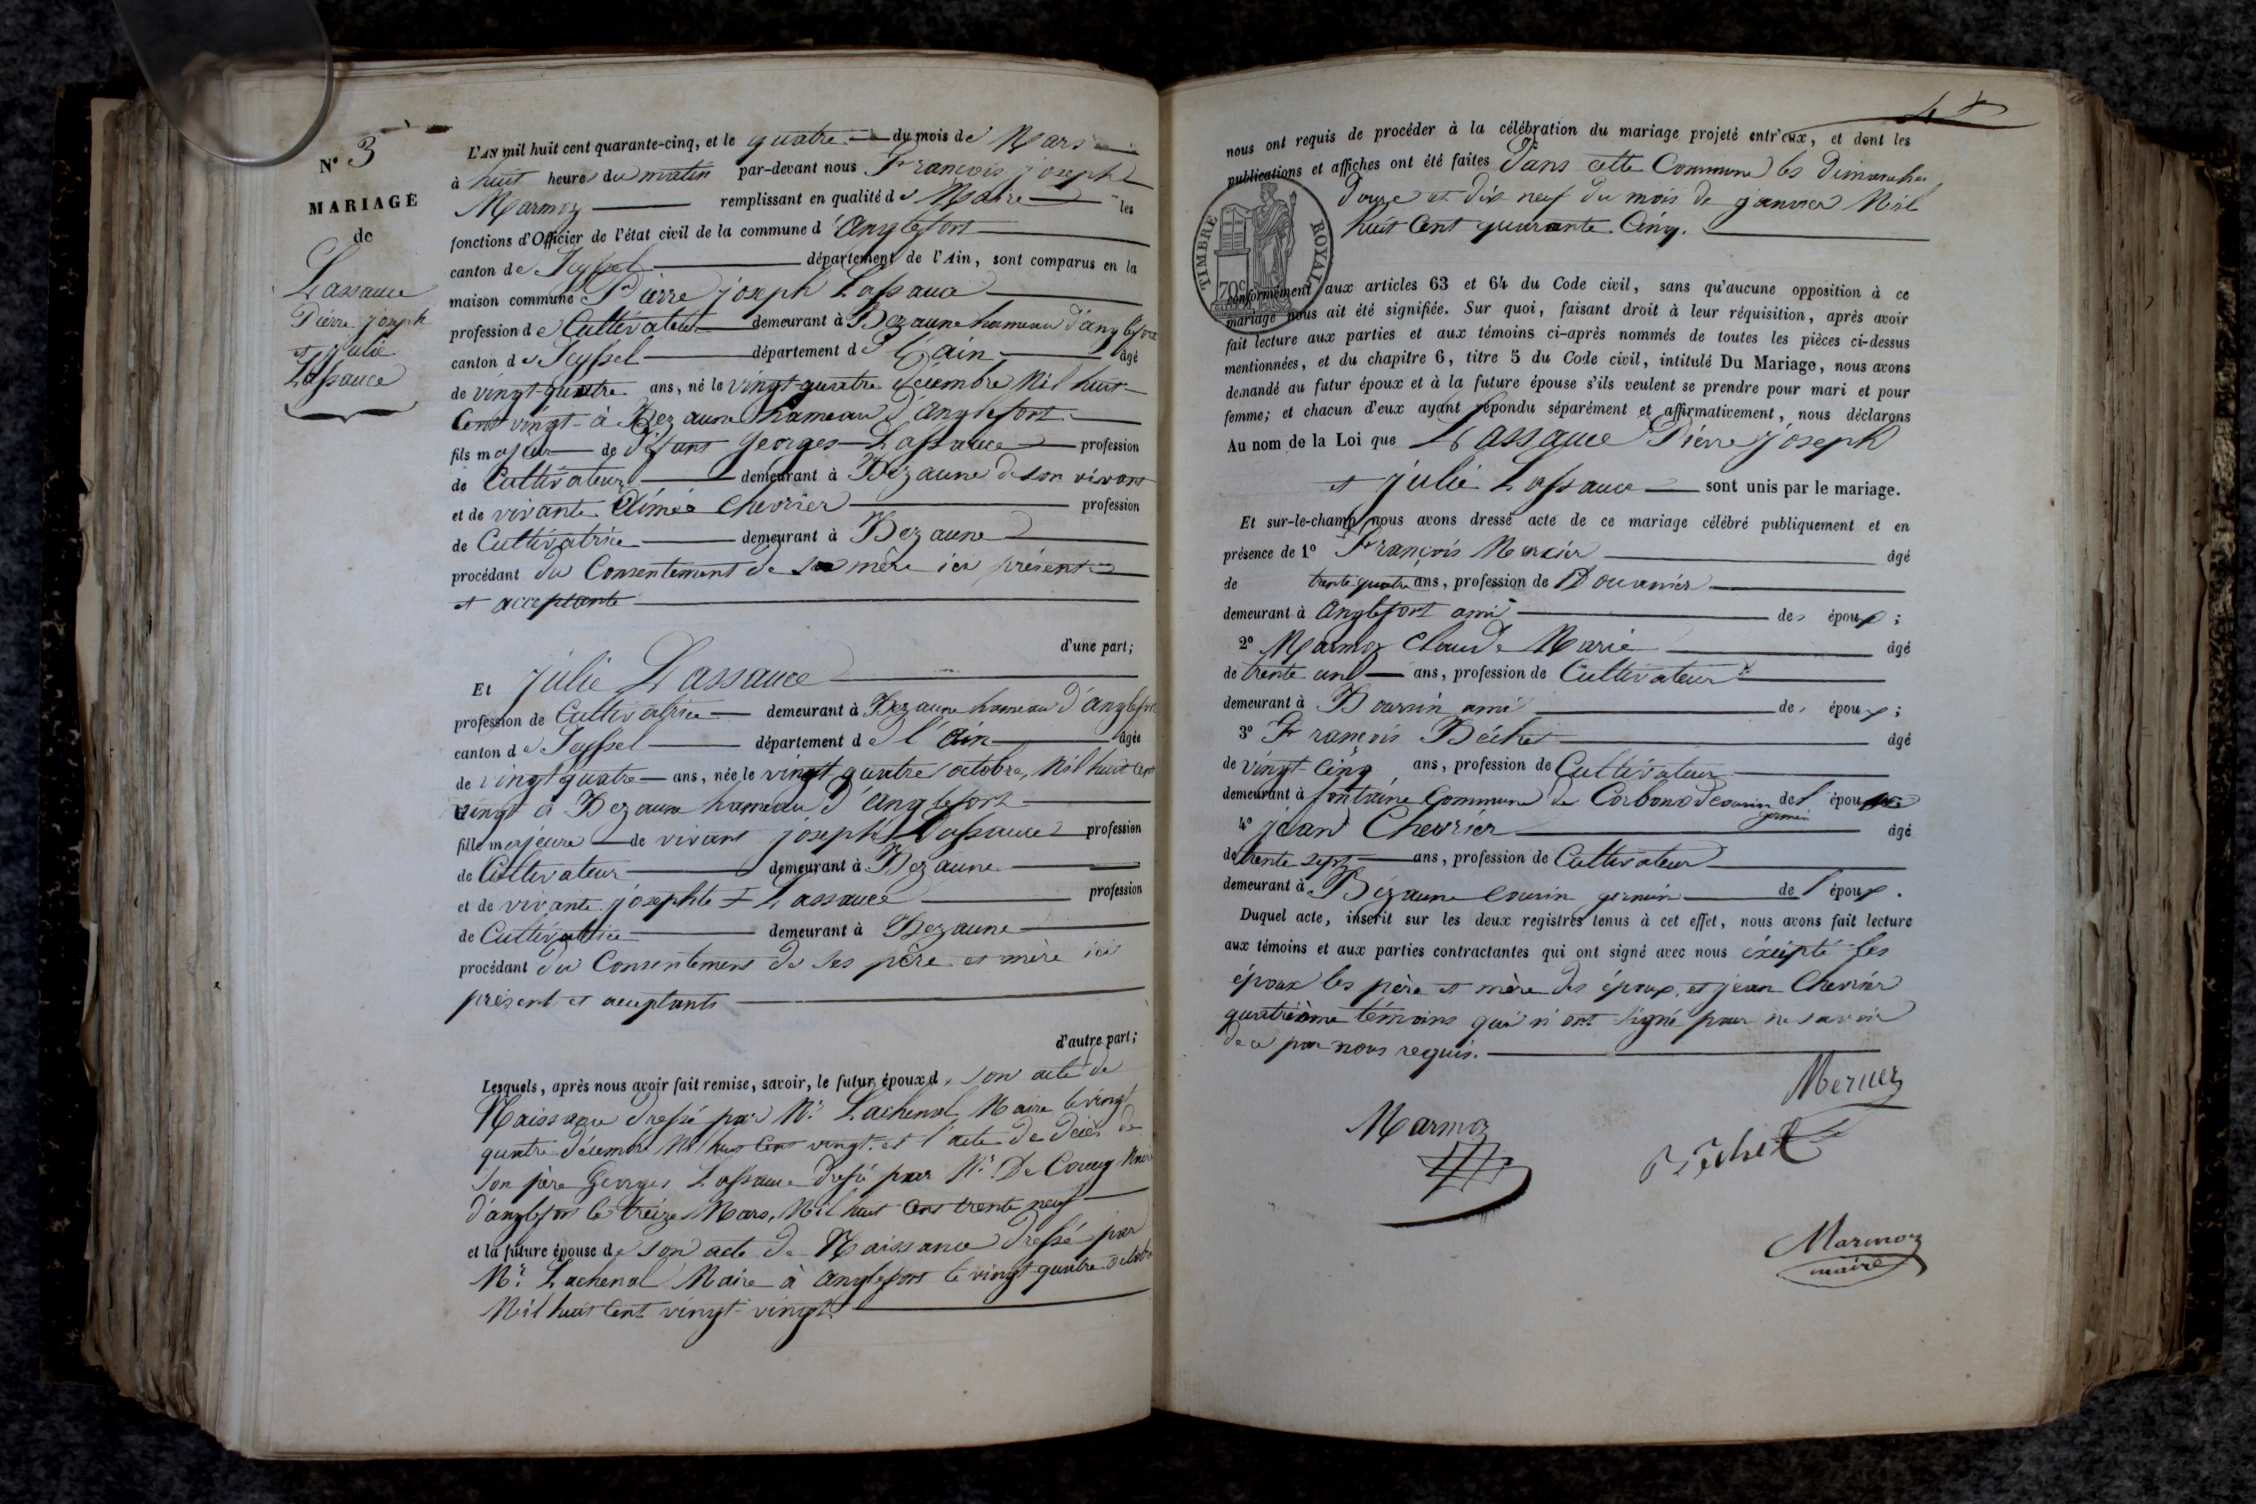 N° 3
MARIAGE
de
Lassauce
Pierre joseph
et julie
Lassauce
L'AN mil huit cent quarante-cinq, et le quatre du mois de Mars
à huit heures du matin par-devant nous François joseph
Marmoz remplissant en qualité de Maire les
fonctions d'Officier de l'état civil de la commune d'Anglefort
canton de Seyssel département de l'Ain, sont comparus en la
maison commune Pierre joseph Lassauce
profession de Cultivateur demeurant à Bezaune hameau d'anglefort
canton de Seyssel département de l'ain âgé
de vingt-quatre ans, né le vingt-quatre décembre Mil huit
Cent vingt à Bezaune hameau d'anglefort
fils majeur de défunt georges Lassauce profession
de Cultivateur demeurant à Bezaune de son vivant
et de vivante Aimée Chevrier profession
de Cultivatrice demeurant à Bezaune
procédant du Consentement de sa mère ici présente
et acceptante
d'une part;
Et julie Lassauce
profession de Cultivatrice demeurant à Bezaune hameau d'anglefort
canton de Seyssel département de l'Ain âgée
de vingt quatre ans, née le vingt quatre octobre, Mil huit Cent
vingt à Bezaune hameau d'anglefort
fille majeure de vivant joseph Lassauce profession
de Cultivateur demeurant à Bezaune
et de vivante josephte Lassauce profession
de Cultivatrice demeurant à Bezaune
procédant du Consentement de ses père et mère ici
présent et acceptants
d'autre part;
Lesquels, après nous avoir fait remise, savoir, le futur époux de son acte de
Naissance dressé par Mr. Lachenal Maire le vingt
quatre décembre Mil huit Cent vingt. et l'acte de décès de
son père Georges Lassauce dressé par Mr. De Coucy Maire
d'anglefort le treize Mars, Mil huit Cent trente neuf
et la future épouse de son acte de Naissance dressé par
Mr. Lachenal Maire à anglefort le vingt-quatre octobre
Mil huit Cent vingt-vingt.
nous ont requis de procéder à la célébration du mariage projeté entr'eux, et dont les
publications et affiches ont été faites dans cette Commune les dimanches
douze et dix neuf du mois de janvier Mil
huit Cent quarante Cinq.
TIMBRE ROYAL
70c
conformément aux articles 63 et 64 du Code civil, sans qu'aucune opposition à ce
mariage nous ait été signifiée. Sur quoi, faisant droit à leur réquisition, après avoir
fait lecture aux parties et aux témoins ci-après nommés de toutes les pièces ci-dessus
mentionnées, et du chapitre 6, titre 5 du Code civil, intitulé Du Mariage, nous avons
demandé au futur époux et à la future épouse s'ils veulent se prendre pour mari et pour
femme; et chacun d'eux ayant répondu séparément et affirmativement, nous déclarons
Au nom de la Loi que Lassauce Pierre joseph
et julie Lassauce sont unis par le mariage.
Et sur-le-champ nous avons dressé acte de ce mariage célébré publiquement et en
présence de 1° François Mercier âgé
de trente quatre ans, profession de Douanier
demeurant à Anglefort ami des époux;
2° Marmoz Claude Marie âgé
de trente un ans, profession de Cultivateur
demeurant à ami des époux;
3° François Béchet âgé
de vingt-Cinq ans, profession de Cultivateur
demeurant à fontaine Commune de Corbonod cousin germain de l'époux
4° jean Chevrier âgé
de trente sept ans, profession de Cultivateur
demeurant à Bezaune Cousin germain de l'époux.
Duquel acte, inscrit sur les deux registres tenus à cet effet, nous avons fait lecture
aux témoins et aux parties contractantes qui ont signé avec nous excepté les
époux les père et mère des époux, et jean Chevrier
quatrième témoins qui n'ont signé pour ne savoir
de ce par nous requis.
Marmoz
Béchet
Marmoz
maire